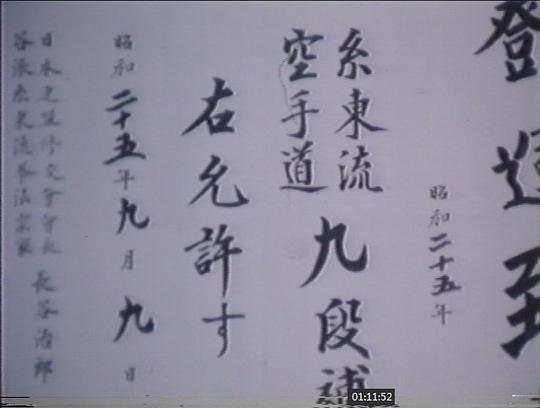 登
到
昭和二十五年
糸東流
空手道
九段補
右允許す
昭和二十五年九月九日
日本 修交會會長
谷派糸東流拳法宗家
長谷治郎
01:11:52